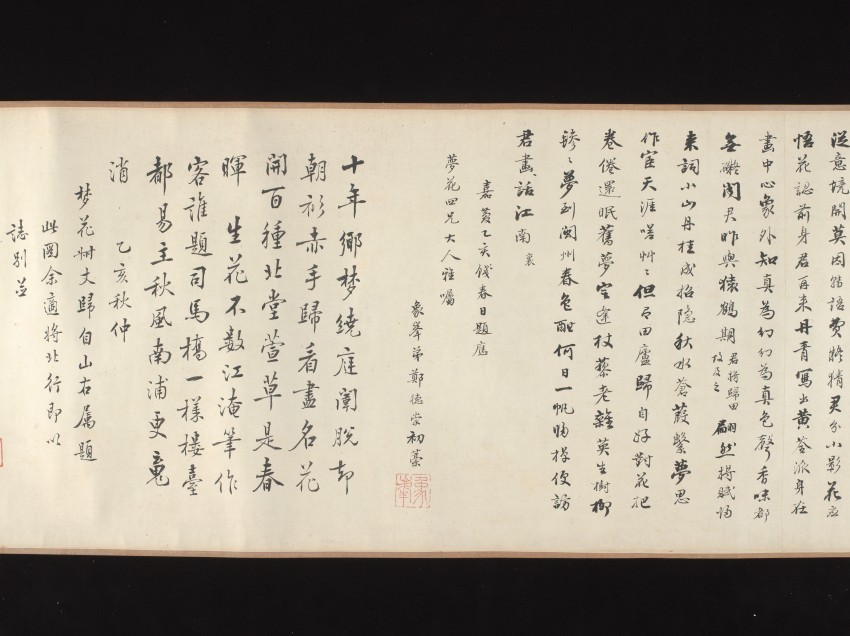 從意境開莫因結語費將精灵分小影花應
悟花認前身君再来丹青寫出黄筌派身在
畫中心象外知真為幻幻為真色聲香味都
無礙閣君昨與猿鶴期君將歸田故及之翩然将賦歸
来詞小山丹桂成招隐秋水蒼葭繫夢思
作宦天涯嗟艸〻但有田廬歸自好對花把
卷倦還眠舊夢空逢杖藜老雜英生樹柳
毿〻夢到閩州春色酣何日一帆歸棹便訪
君畫、話江南裏
嘉慶乙亥餞春日題應
夢花四兄大人雅囑
象峯弟鄭德崇初藁
十年鄉梦繞庭闈脫却
朝衫赤手歸看盡名花
開百種北堂萱草是春
暉 生花不數江淹筆作
客誰題司馬橋一樣樓臺
都易主秋風南浦更魂
消 乙亥秋仲
梦花州丈歸自山右属題
此圖余適將北行即以
誌别並